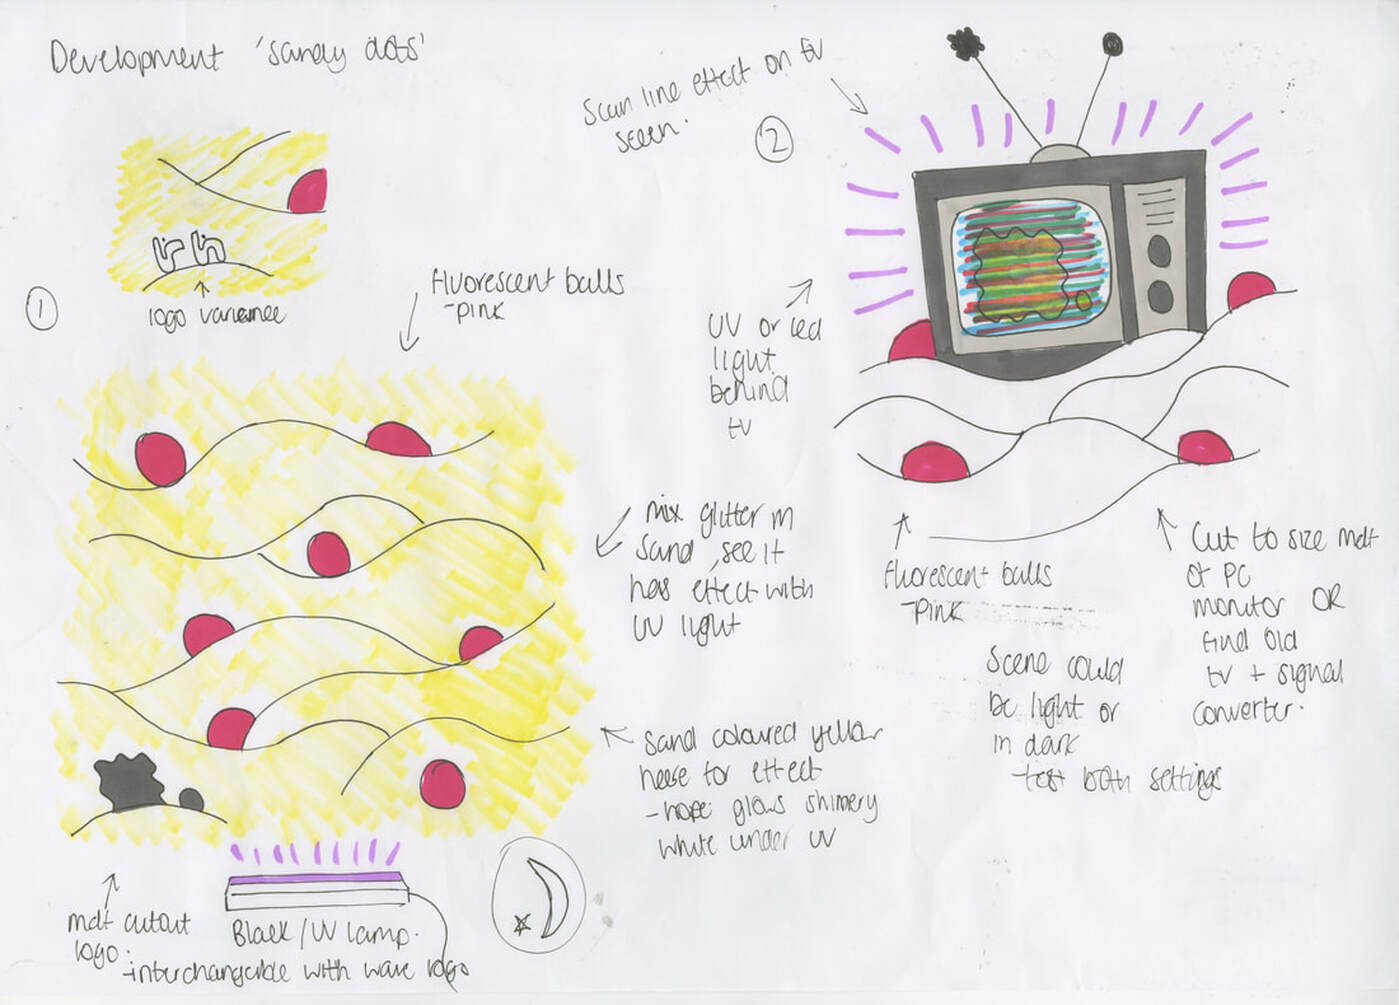 Development 'sandy dots'
Scan line effect on tv
screen.
②
①
logo varience
fluorescent balls
-pink
UV or led
light
behind
tv
mix glitter in
sand, see it
has effect with
UV light
fluorescent balls
-pink
Cut to size
of PC
monitor OR
find old
tv + signal
converter.
Scene could
be light or
in dark
-test both settings
Sand coloured yellow
here for effect
-hope glows shimery
white under UV
cutout
logo.
-interchangeble with wave logo
Black/UV lamp.